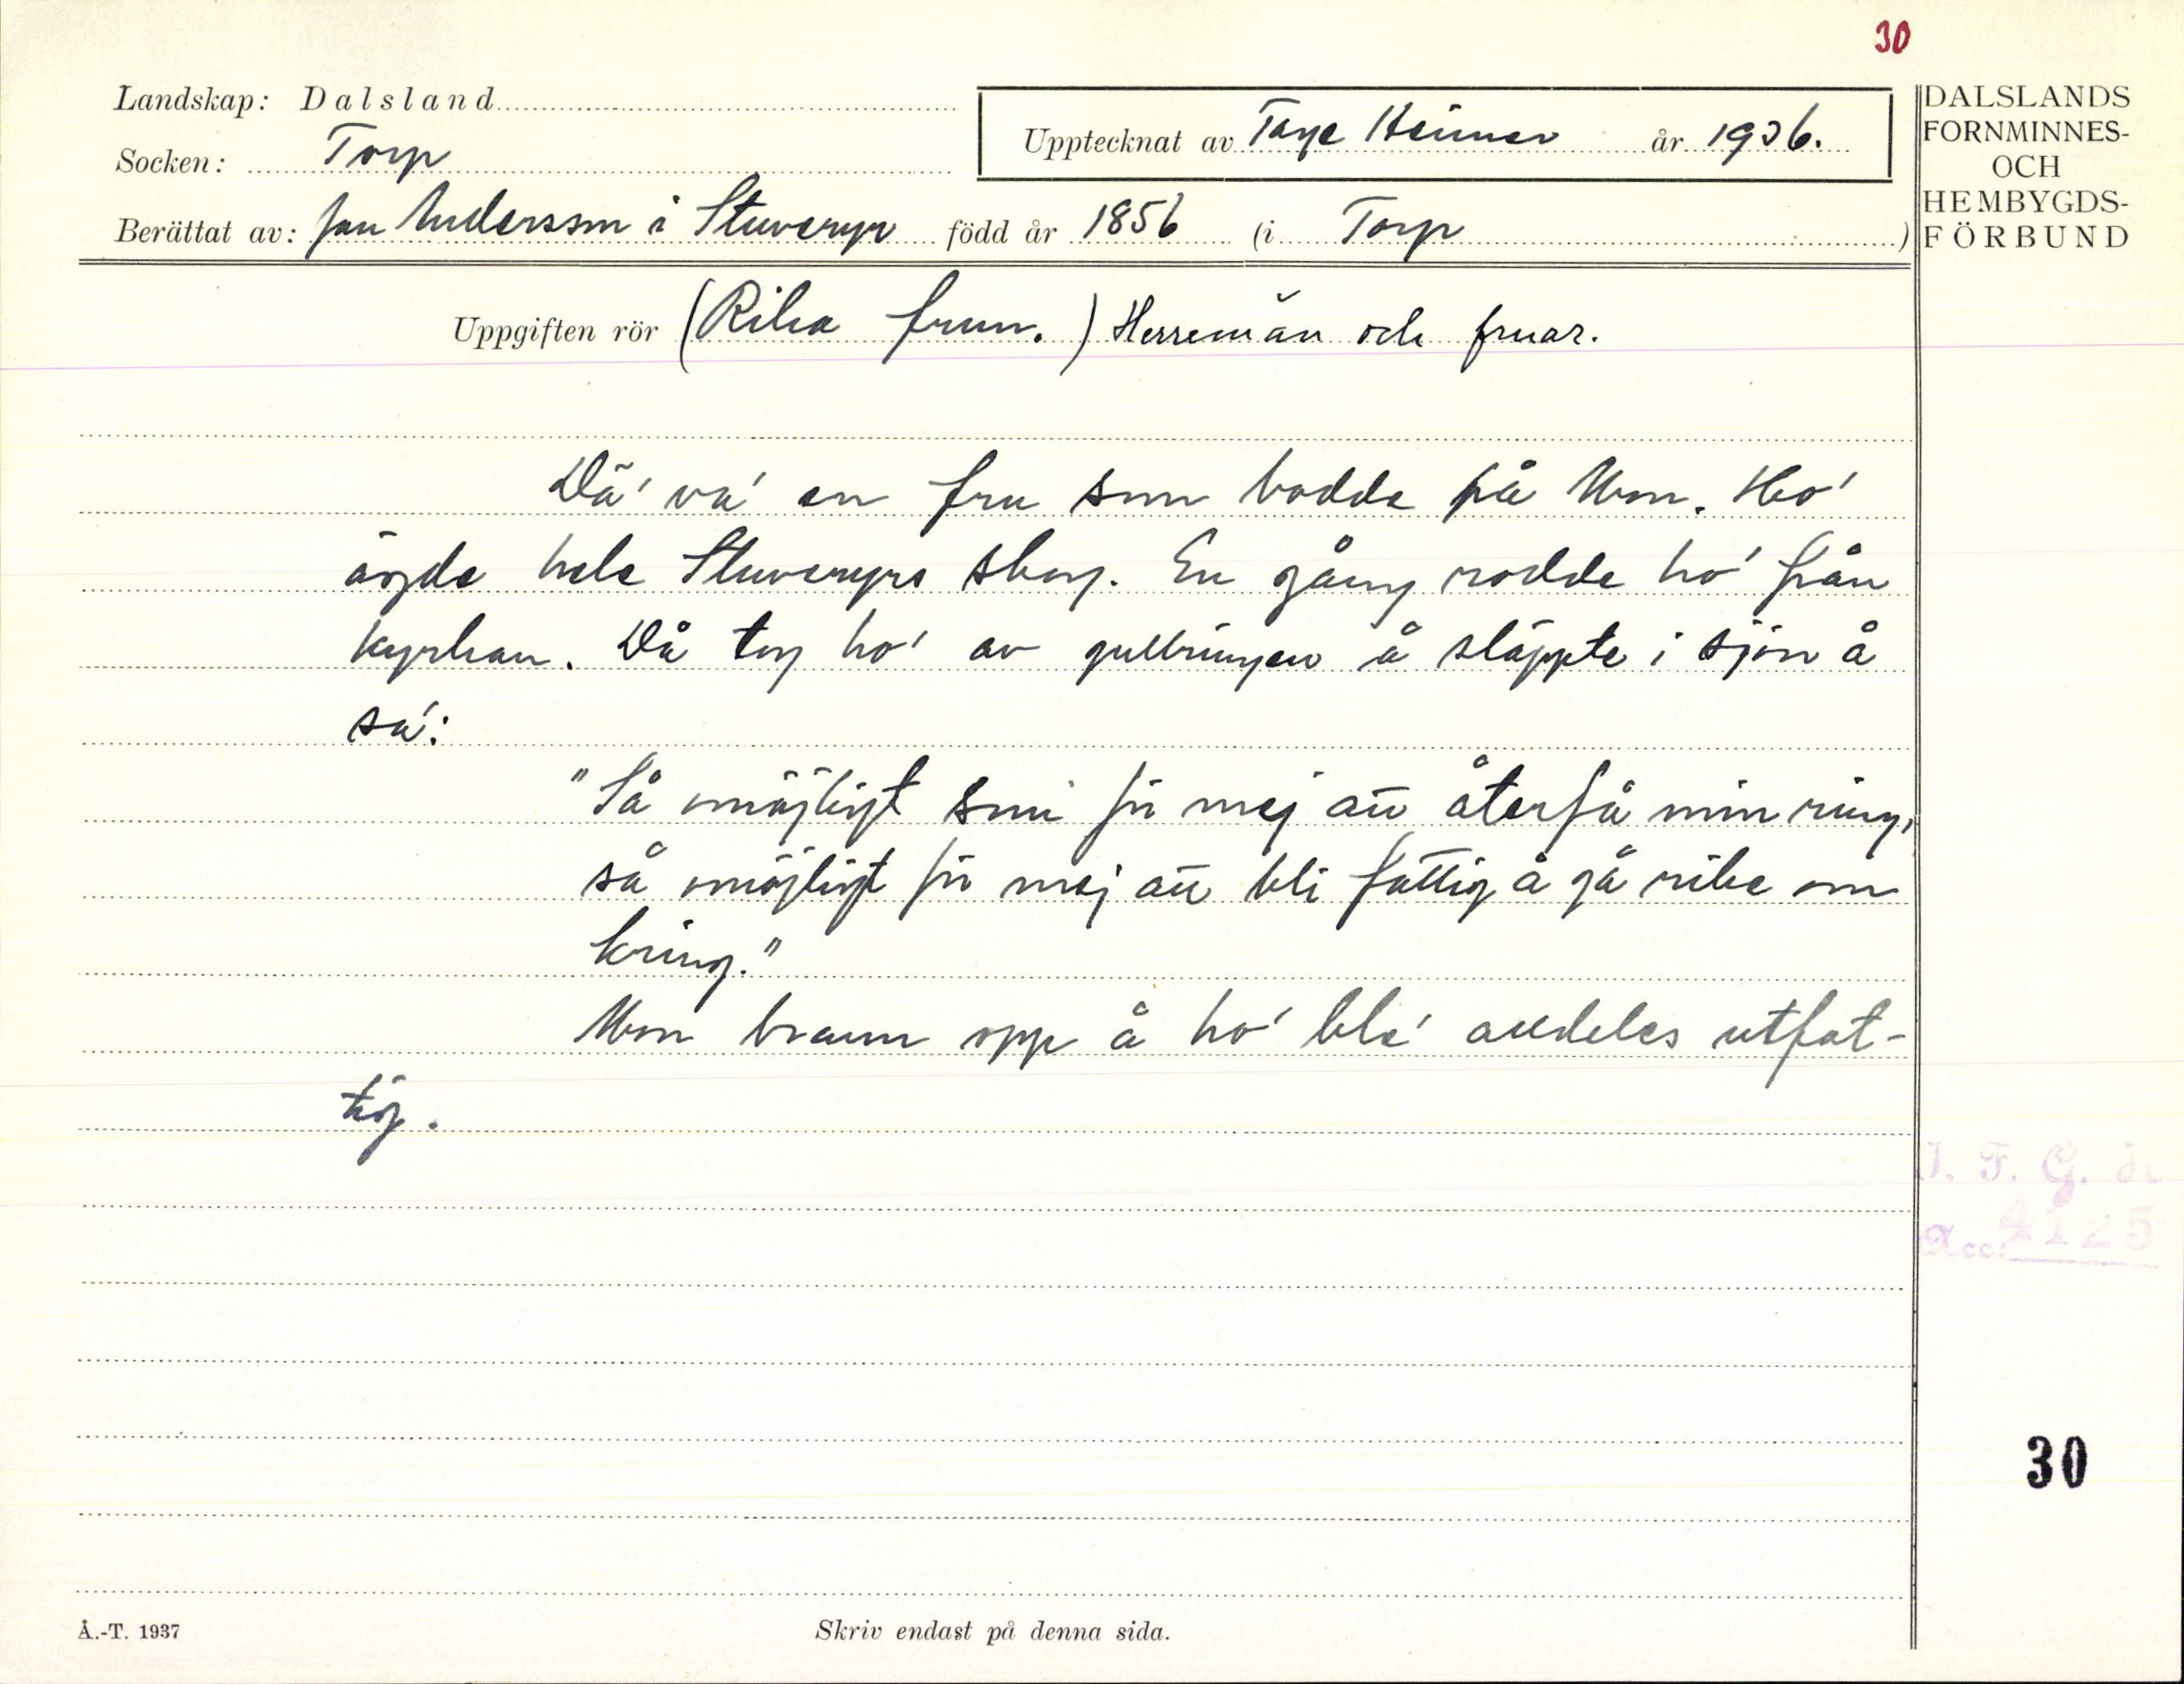 30
Landskap: Dalsland
Socken: Torp
Upptecknat av Tage Heimer år 1936.
Berättat av: Jan Andersson i Stuveryr född år 1856 (i Torp)
DALSLANDS
FORNMINNES-
OCH
HEMBYGDS-
FÖRBUND
Uppgiften rör (Rika frun.) Herremän och fruar.
Dä' va' en fru som bodde på Mon. Ho'
ägde hele Stuveryrs skog. En gång rodde ho' från
kyrkan. Då tog ho' av gullringen å släppte i sjön å
sa':
"Så omöjligt som för mej att återfå min ring,
så omöjligt för mej att bli fattig å gå rike om
kring."
Mon brann opp å ho' ble' alldeles utfat-
tig.
I. F. G.
Acc: 4125
30
Å.-T. 1937
Skriv endast på denna sida.